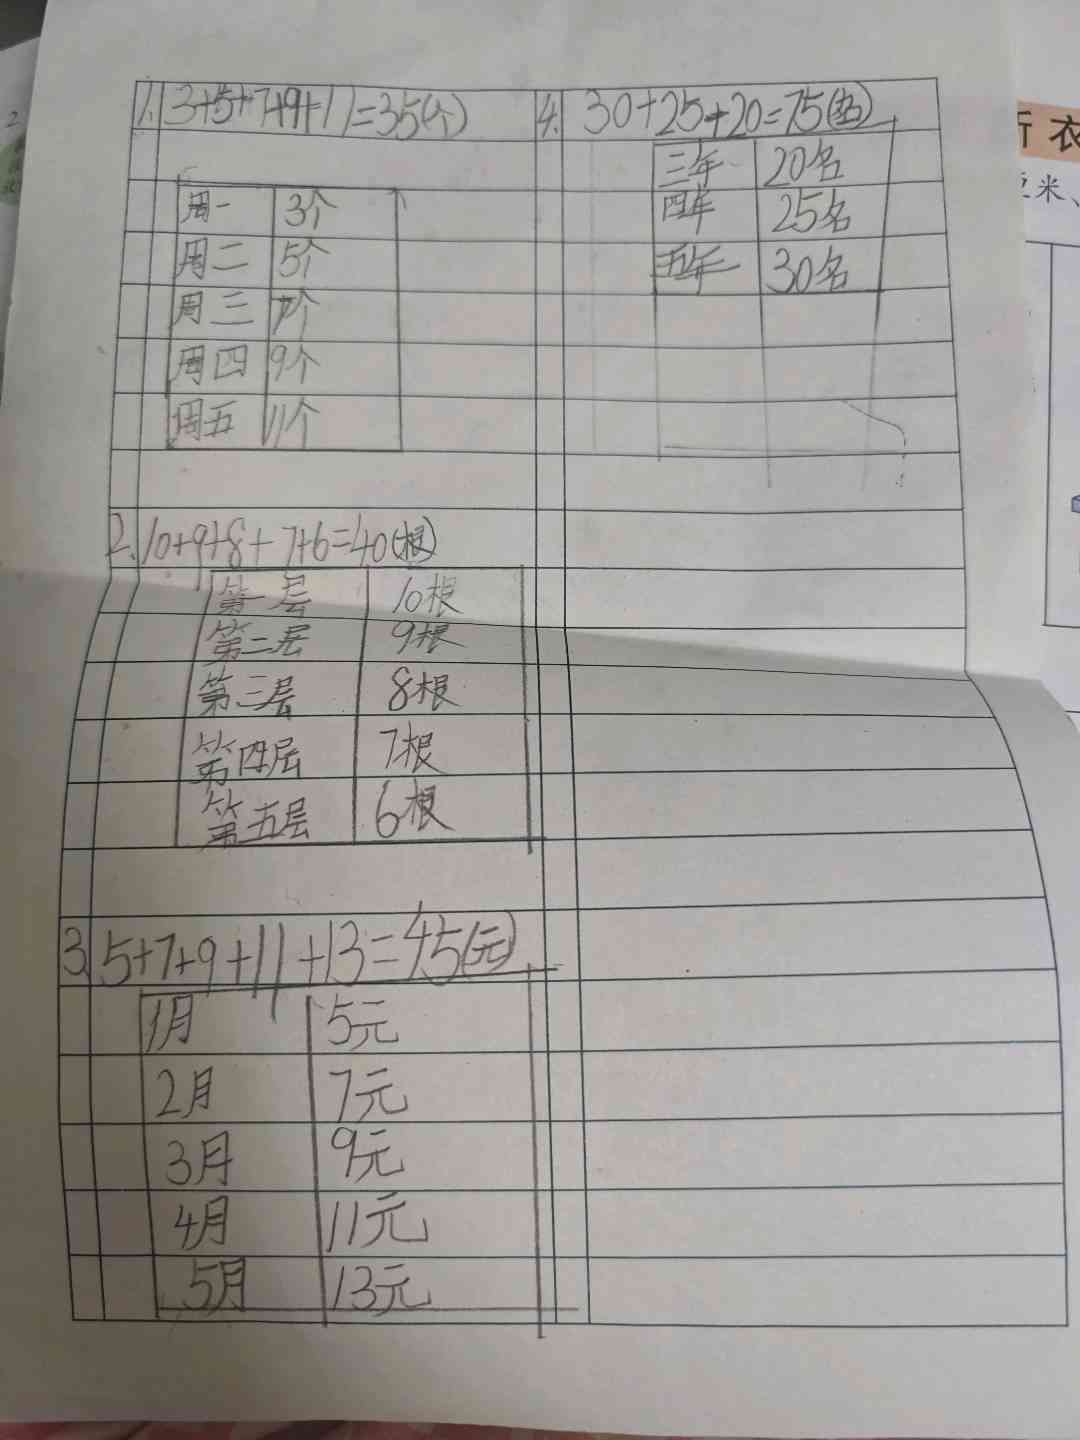 1. 3+5+7+9+11=35(个)
周一 3个
周二 5个
周三 7个
周四 9个
周五 11个
2. 10+9+8+7+6=40(根)
第一层 10根
第二层 9根
第三层 8根
第四层 7根
第五层 6根
3. 5+7+9+11+13=45(元)
1月 5元
2月 7元
3月 9元
4月 11元
5月 13元
4. 30+25+20=75(名)
三年 20名
四年 25名
五年 30名
衣
厘米、
2